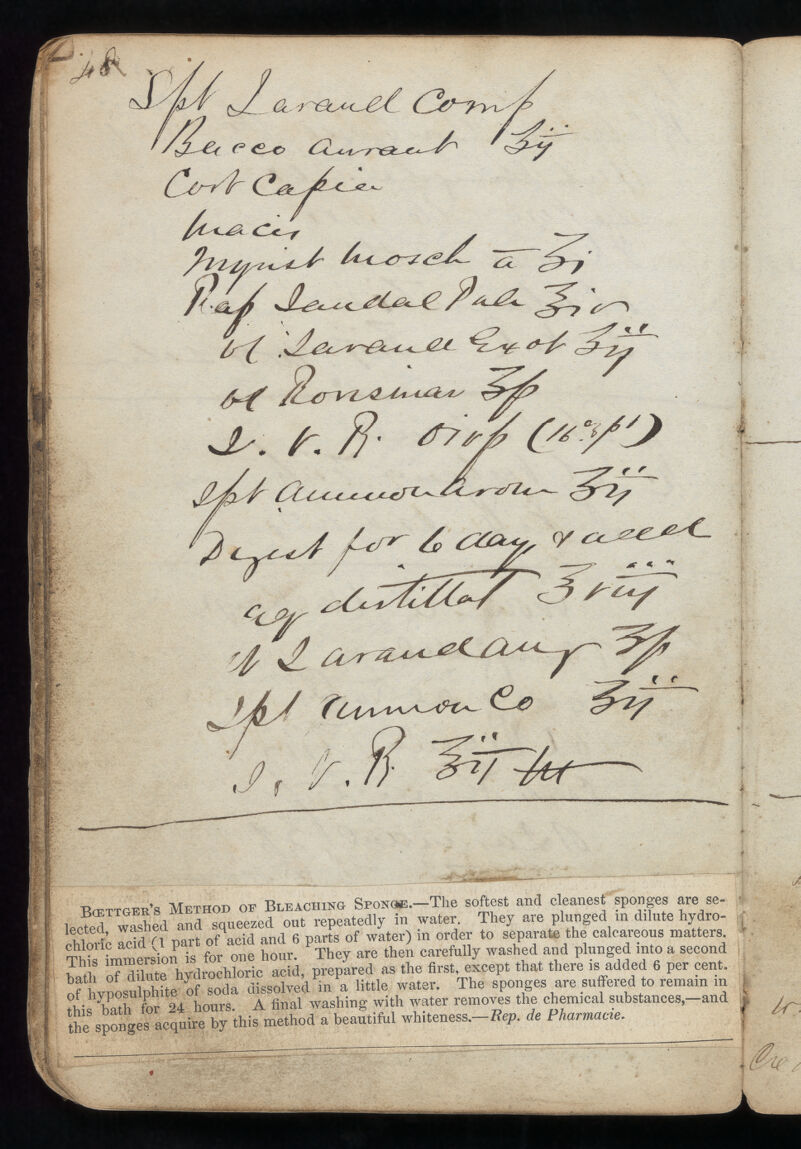 48
Spt Lavand Comp
Bacco Aurant ʒij
Cort Capia
Macis
Myrist Mosch a ʒi
Rap Sandal Pulv ℥iv
ol Lavand Exot ʒij
ol Rorismar ʒſs
S. V. R. Oivſs
Spt Ammon Arom ℥ij
Digest for 6 days & add
aq distillat ℥viij
ol Lavand Ang ʒſs
Spt Ammon Co ʒij
S. V. R. ℥ij M
BŒTTGER'S METHOD OF BLEACHING SPONGE.—The softest and cleanest sponges are se-
lected, washed and squeezed out repeatedly in water. They are plunged in dilute hydro-
chloric acid (1 part of acid and 6 parts of water) in order to separate the calcareous matters.
This immersion is for one hour. They are then carefully washed and plunged into a second
bath of dilute hydrochloric acid, prepared as the first, except that there is added 6 per cent.
of hyposulphite of soda dissolved in a little water. The sponges are suffered to remain in
this bath for 24 hours. A final washing with water removes the chemical substances,—and
the sponges acquire by this method a beautiful whiteness.—Rep. de Pharmacie.